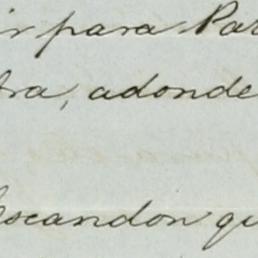 ir para Par
tra, adonde
Escandon qu